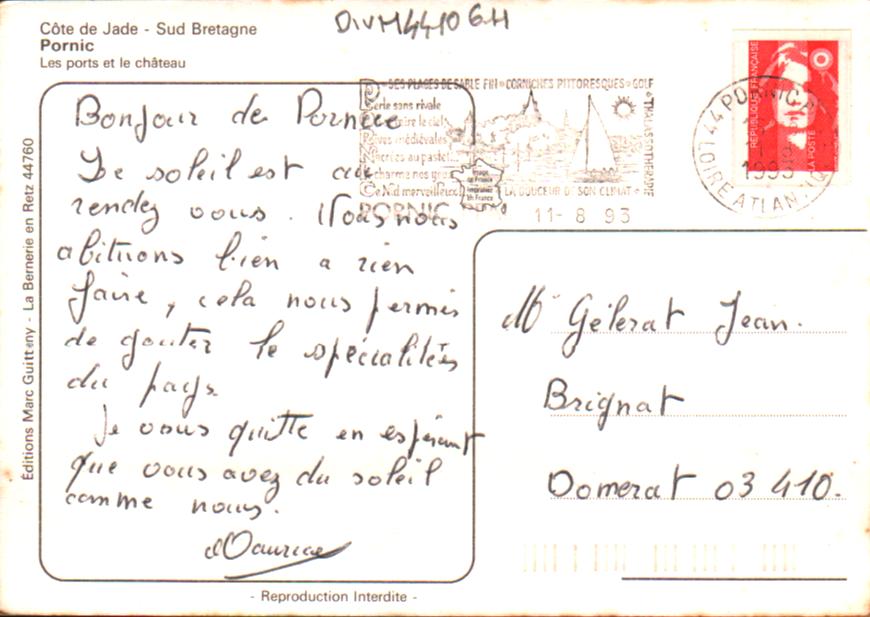 Côte de Jade - Sud Bretagne
Pornic
Les ports et le château
DIVM4410GH
Éditions Marc Guitteny - La Bernerie en Retz 44760
Bonjour de Pornic
Le soleil est au
rendez vous. Nous nous
abituons bien a rien
faire, cela nous permis
de gouter le spécialitées
du pays.
Je vous quitte en espérant
que vous avez du soleil
comme nous.
Maurice
SES PLAGES DE SABLE FIN - CORNICHES PITTORESQUES - GOLF
THALASSOTHERAPIE
Perle sans rivale
Rives médiévales
Nacrées au pastel
Nid merveilleux
Image de France
Imprimée en France
LA DOUCEUR DE SON CLIMAT
PORNIC
11- 8 93
44 PORNIC
1993
LOIRE ATLANTIQUE
REPUBLIQUE FRANÇAISE
LA POSTE
Mr Gélerat Jean.
Brignat
Domerat 03 410.
- Reproduction Interdite -